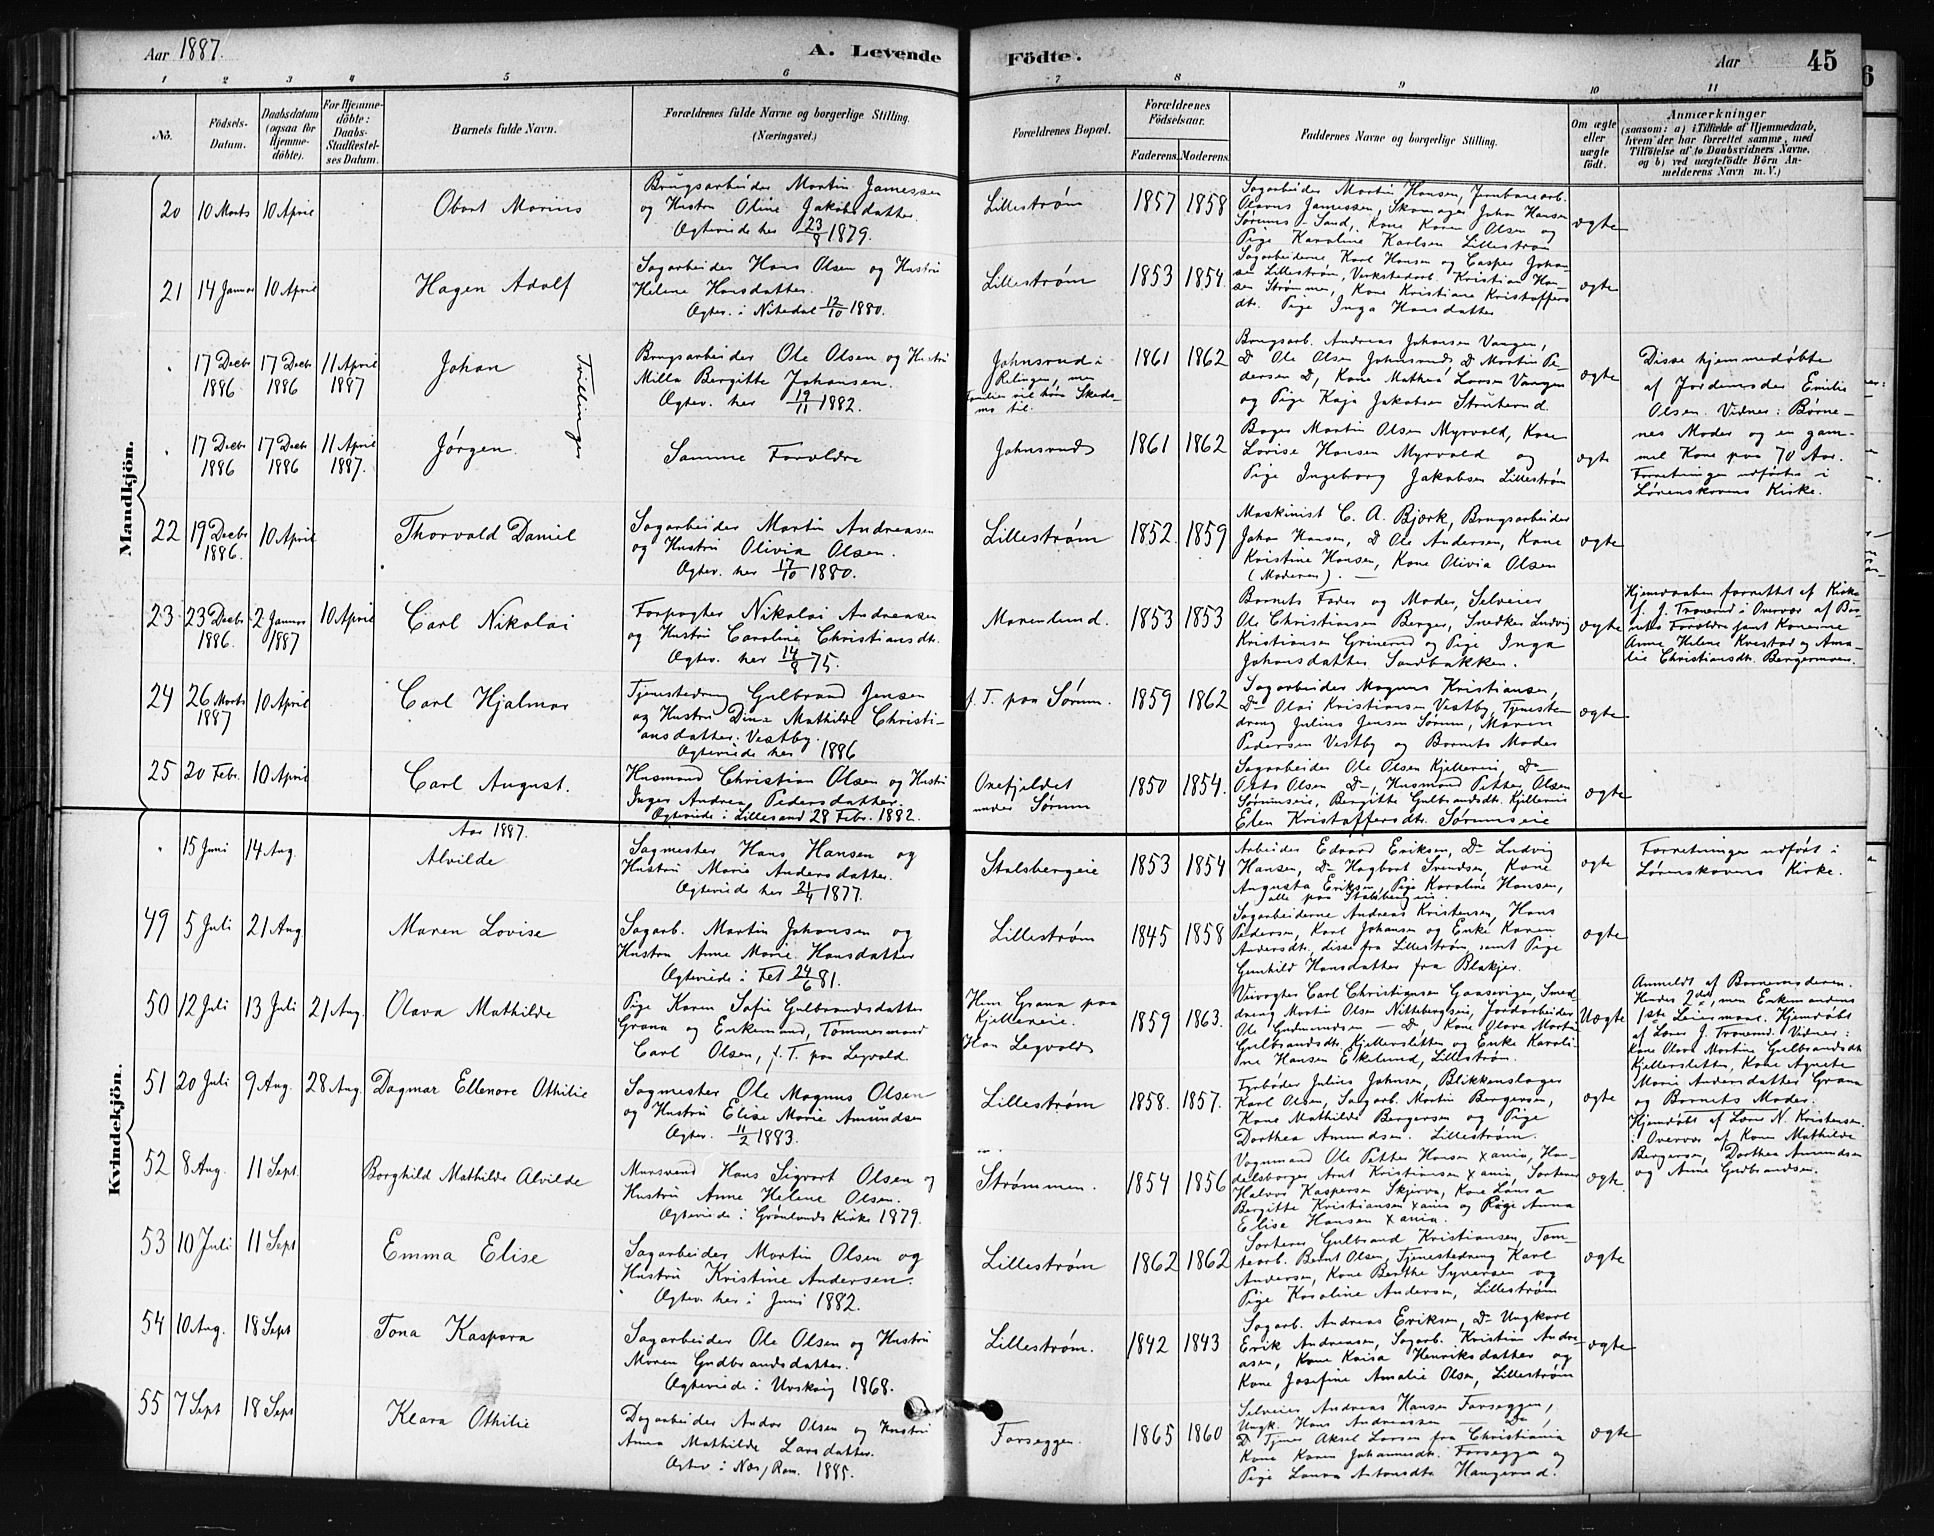 Aar 1887.
A. Levende Födte.
Aar 45
1 2 3 4 5 6 7 8 9 10 11
No.
Födsels-Datum.
Daabsdatum (ogsaa for Hjemmedöbte).
For Hjemmedöbte: Daabs-Stadfæstelses Datum.
Barnets fulde Navn.
Forældrenes fulde Navne og borgerlige Stilling. (Næringsvei.)
Forældrenes Bopæl.
Forældrenes Födselsaar.
Faderens. Moderens.
Faddernes Navne og borgerlige Stilling.
Om ægte eller uægte födt.
Anmærkninger
(saasom: a) i Tilfælde af Hjemmedaab,
hvem der har forrettet samme, med
Tilföielse af to Daabsvidners Navne,
og b) ved uægtefödte Börn An-
melderens Navn m. V.)
Mandkjön.
20 10 Marts 10 April
Obert Marius
Brugsarbeider Martin Jamessen
og Hustru Oline Jakobsdatter.
Ægteviede her 23/8 1879.
Lillestrøm 1857 1858
Sagarbeider Martin Hansen, Jernbanearb.
Olavus Jamessen, Skomager Johan Hansen
Sørums-Sand, Kone Karen Olsen og
Pige Karoline Karlsen Lillestrøm
ægte
21 14 Januar 10 April
Hagen Adolf
Sagarbeider Hans Olsen og Hustru
Helene Hansdatter.
Ægtev. i Nitedal 12/10 1880.
Lillestrøm 1853 1854
Sagarbeiderne Karl Hansen og Casper Johan-
sen Lillestrøm, Verkstedarb. Kristian Han-
sen Strømmen, Kone Kristiane Kristoffers
dt. Pige Inga Hansdatter
ægte
17 Decbr 1886 17 Decbr 1886 11 April 1887
Johan
Tvillinger
Brugsarbeider Ole Olsen og Hustru
Milla Bergitte Johansen.
Ægtev. her 19/11 1882.
Johnsrud i
Relingen, men
Familien vil høre Skeds-
mo til.
1861 1862
Brugsarb. Andreas Johansen Vangen,
D Ole Olsen Johnsrud, D Martin Pe-
dersen D, Kone Mathea Larsen Vangen
og Pige Kaja Jakobsen Struterud.
ægte
Disse hjemmedøbte
af Jordemoder Emilie
Olsen. Vidner: Børne-
nes Moder og en gam-
mel Kone paa 70 Aar.
Forretningen udførtes i
Lørenskovens Kirke.
17 Decbr 1886 17 Decbr 1886 11 April 1887.
Jørgen
Samme Forældre
Johnsrud 1861 1862
Bager Martin Olsen Myrvold, Kone
Lovise Hansen Myrvold og
Pige Ingeborg Jakobsen Lillestrøm
ægte
22 19 Decbr 1886. 10 April
Thorvald Daniel
Sagarbeider Martin Andreasen
og Hustru Olivia Olsen.
Ægtev. her 17/10 1880.
Lillestrøm 1852 1859
Maskinist C. A. Bjørk, Brugsarbeider
Johan Hansen, D Ole Andersen, Kone
Kristine Hansen, Kone Olivia Olsen
(Moderen).
ægte
23. 23 Decbr 1886. 2 Januar 1887 10 April
Carl Nikolai
Forpagter Nikolai Andreasen
og Hustru Caroline Christiansdt.
Ægtev. her 14/8 75.
Marenlund. 1853 1853
Barnets Fader og Moder, Selveier
Ole Christiansen Berger, Snedker Ludvig
Kristiansen Grinerud og Pige Inga
Johansdatter Sandbakken.
ægte
Hjemdaaben forrettet af Kirke-
s. J. Tronerud i Overvær af Bar-
nets Forældre samt Konerne
Anne Helene Kvestad og Ama-
lie Christiansdt. Bergermoen.
24 26 Marts 1887 10 April
Carl Hjalmar
Tjenestedreng Gulbrand Jensen
og Hustru Dina Mathilde Christi-
ansdatter. Vestby.
Ægteviede her 1886
f. T. paa Sørum. 1859 1862
Sagarbeider Magnus Kristiansen,
D Olai Kristiansen Vestby, Tjeneste-
dreng Julius Jensen Sørum, Maren
Pedersen Vestby og Barnets Moder
ægte
25 20 Febr. 10 April
Carl August.
Husmand Christian Olsen og Hustru
Inger Andrea Pedersdatter.
Ægteviede i Lillesand 28 Febr. 1882.
Oxefjeldet
under Sørum
1850 1854.
Sagarbeider Ole Olsen Kjellereie, D
Otto Olsen D, Husmand Petter Olsen
Sørumseie, Bergitte Gulbrandsdt. Kjellereie
Elen Kristoffersdt. Sørumseie
ægte
Kvindekjön.
Aar 1887.
15 Juni 14 Aug.
Alvilde
Sagmester Hans Hansen og
Hustru Marie Andersdatter.
Ægteviede her 21/4 1877.
Stalsbergeie 1853 1854
Arbeider Edvard Eriksen, D Ludvig
Hansen, D Hagbart Svendsen, Kone
Augusta Eriksen, Pige Karoline Hansen,
alle paa Stalsbergeie.
ægte
Forretningen udført i
Lørenskovens Kirke.
49 5 Juli 21 Aug
Maren Lovise
Sagarb. Martin Johansen og
Hustru Anne Marie Hansdatter
Ægteviede i Fet 24/6 81.
Lillestrøm 1845 1858
Sagarbeiderne Andreas Kristensen, Hans
Pedersen, Karl Johansen og Enke Karen
Andersdt. disse fra Lillestrøm, samt Pige
Gunhild Hansdatter fra Blakjer.
ægte
50 12 Juli 13 Juli 21 Aug.
Olava Mathilde
Pige Karen Sofie Gulbrandsdatter
Grana og Enkemand, Tømmermand
Carl Olsen, f. T. paa Legvold.
Hun Grana paa
Kjellereie.
Han Legvold
1859 1863.
Veivogter Carl Christiansen Gaasevigen, Smed-
dreng Martin Olsen Nittebergseie, Jordarbeider
Ole Gudmundsen D, Kone Olava Martine
Gulbrandsdt. Kjellersletten og Enke Karoli-
ne Hansen Ekelund, Lillestrøm.
Uægte
Anmeldt af Barnemoderen.
Hendes 2det, men Enkemandens
1ste Leiermaal. Hjemdøbt
af Lærer J. Tronerud. Vidner:
Kone Olava Martine Gulbrandsdt.
Kjellersletten, Kone Agnete
Marie Andersdatter Grana
og Barnets Moder.
51 20 Juli 9 Aug. 28 Aug.
Dagmar Ellenore Othilie
Sagmester Ole Magnus Olsen
og Hustru Elise Marie Amundsen
Ægtev. 11/2 1883.
Lillestrøm 1858. 1857.
Fyrbøder Julius Johnsen, Blikkenslager
Karl Olsen, Sagarb. Martin Bergersen,
Kone Mathilde Bergersen og Pige
Dorthea Amundsen. Lillestrøm.
ægte
Hjemdøbt af Lærer N. Kristensen
i Overvær af Kone Mathilde
Bergersen, Dorthea Amundsen
og Anne Gudbrandsen.
52 8 Aug. 11 Sept.
Borghild Mathilde Alvilde
Mursvend Hans Sigvart Olsen og
Hustru Anne Helene Olsen.
Ægteviede i Grønlands Kirke 1879.
Strømmen. 1854 1856
Vognmand Ole Petter Hansen Xania, Han-
delsborger Arnt Kristiansen Xania, Sorterer
Halvor Kaspersen Skjerva, Kone Lovisa
Bergitte Kristiansen Xania og Pige Anna
Elise Hansen Xania.
ægte.
53 10 Juli 11 Sept
Emma Elise
Sagarbeider Martin Olsen og
Hustru Kristine Andersen.
Ægtev. her i Juni 1882.
Lillestrøm 1862 1862
Sorterer Gulbrand Kristiansen, Tom-
tearb. Bernt Olsen, Tjenestedreng Karl
Andersen, Kone Berthe Syversen og
Pige Karoline Andersen, Lillestrøm
ægte
54 10 Aug. 18 Sept
Tona Kaspara
Sagarbeider Ole Olsen og Hustru
Maren Gudbrandsdatter.
Ægteviede i Urskoug 1868.
Lillestrøm. 1842 1843
Sagarb. Andreas Eriksen, D Ungkarl
Erik Andreasen, Sagarb. Kristian Andre-
asen, Kone Kaisa Henriksdatter og
Kone Josefine Amalie Olsen, Lillestrøm
ægte
55 7 Sept 18 Sept
Klara Othilie
Dagarbeider Andor Olsen og Hustru
Anna Mathilde Larsdatter.
Ægtev i Næs, Rom. 1885.
Farseggen. 1865 1860
Selveier Andreas Hansen Farseggen,
Ungk. Hans Andreassen D,
D Tjener Aksel Larsen fra Christiania
Kone Karen Johannesdt. Farseggen og
Pige Laura Antonsdt. Haugerud.
ægte